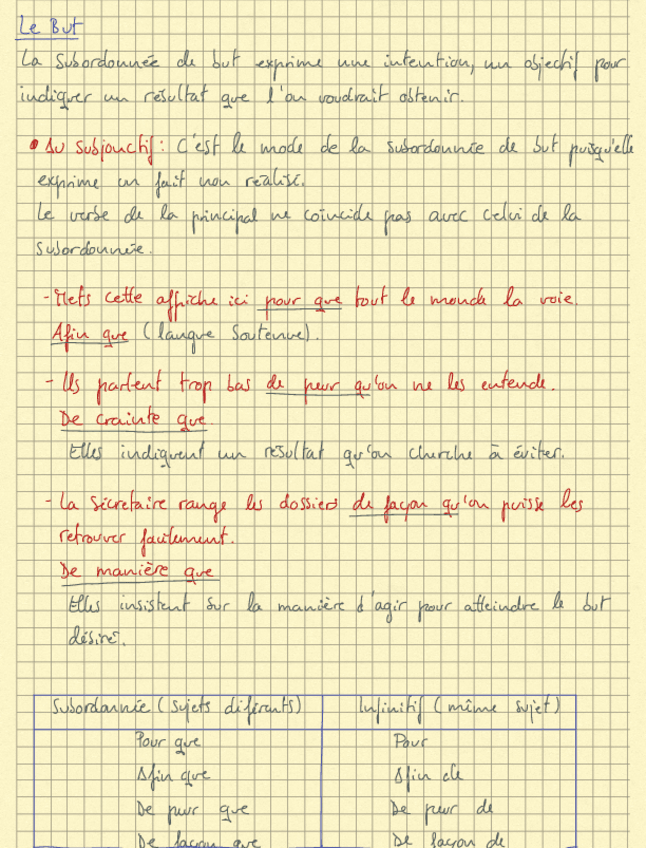 Le But
La subordonnée de but exprime une intention, un objectif pour
indiquer un résultat que l'on voudrait obtenir.
• Au subjonctif : C'est le mode de la subordonnée de but puisqu'elle
exprime un fait non réalisé.
Le verbe de la principal ne coïncide pas avec celui de la
subordonnée.
- Mets cette affiche ici pour que tout le monde la voie.
Afin que (langue soutenue).
- Ils parlent trop bas de peur qu'on ne les entende.
De crainte que
Elles indiquent un résultat qu'on cherche à éviter.
- La sécretaire range les dossiers de façon qu'on puisse les
retrouver facilement.
De manière que
Elles insistent sur la manière d'agir pour atteindre le but
désiré.
Subordonnée (sujets diférents) Infinitif (même sujet)
Pour que Pour
Afin que Afin de
De peur que De peur de
De façon que De façon de